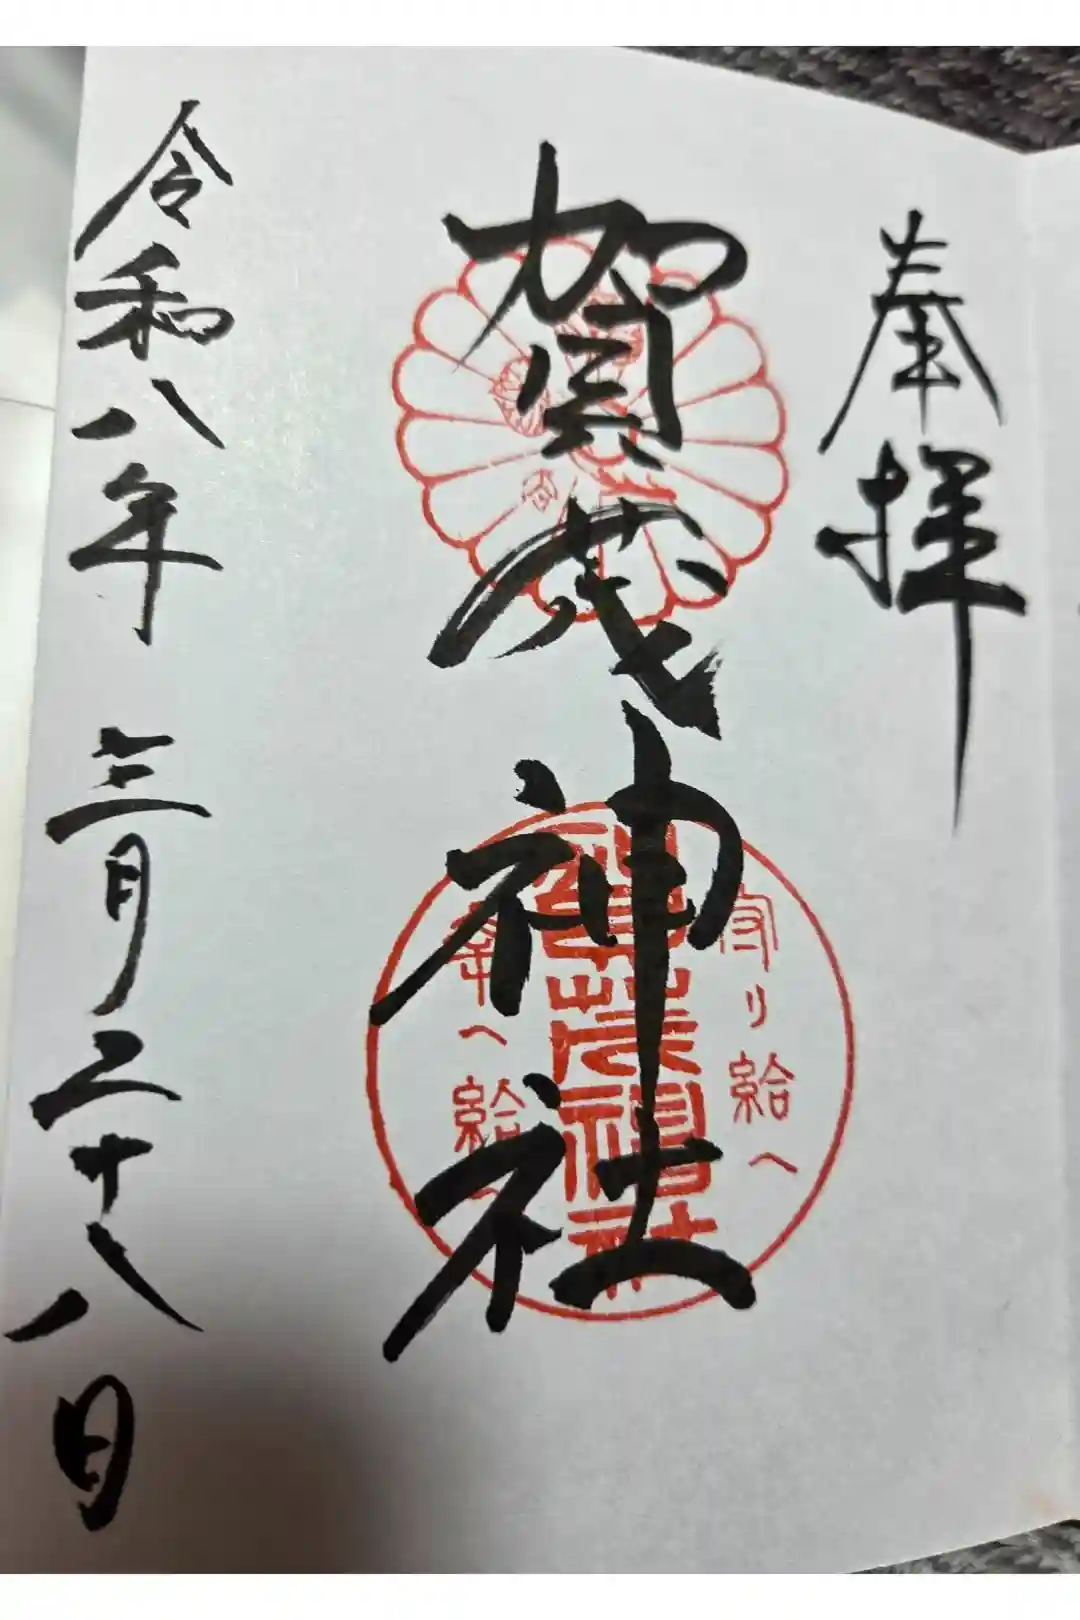 奉拝
賀茂神社
守り給へ
賀茂神社
幸へ給へ
令和八年 三月二十八日